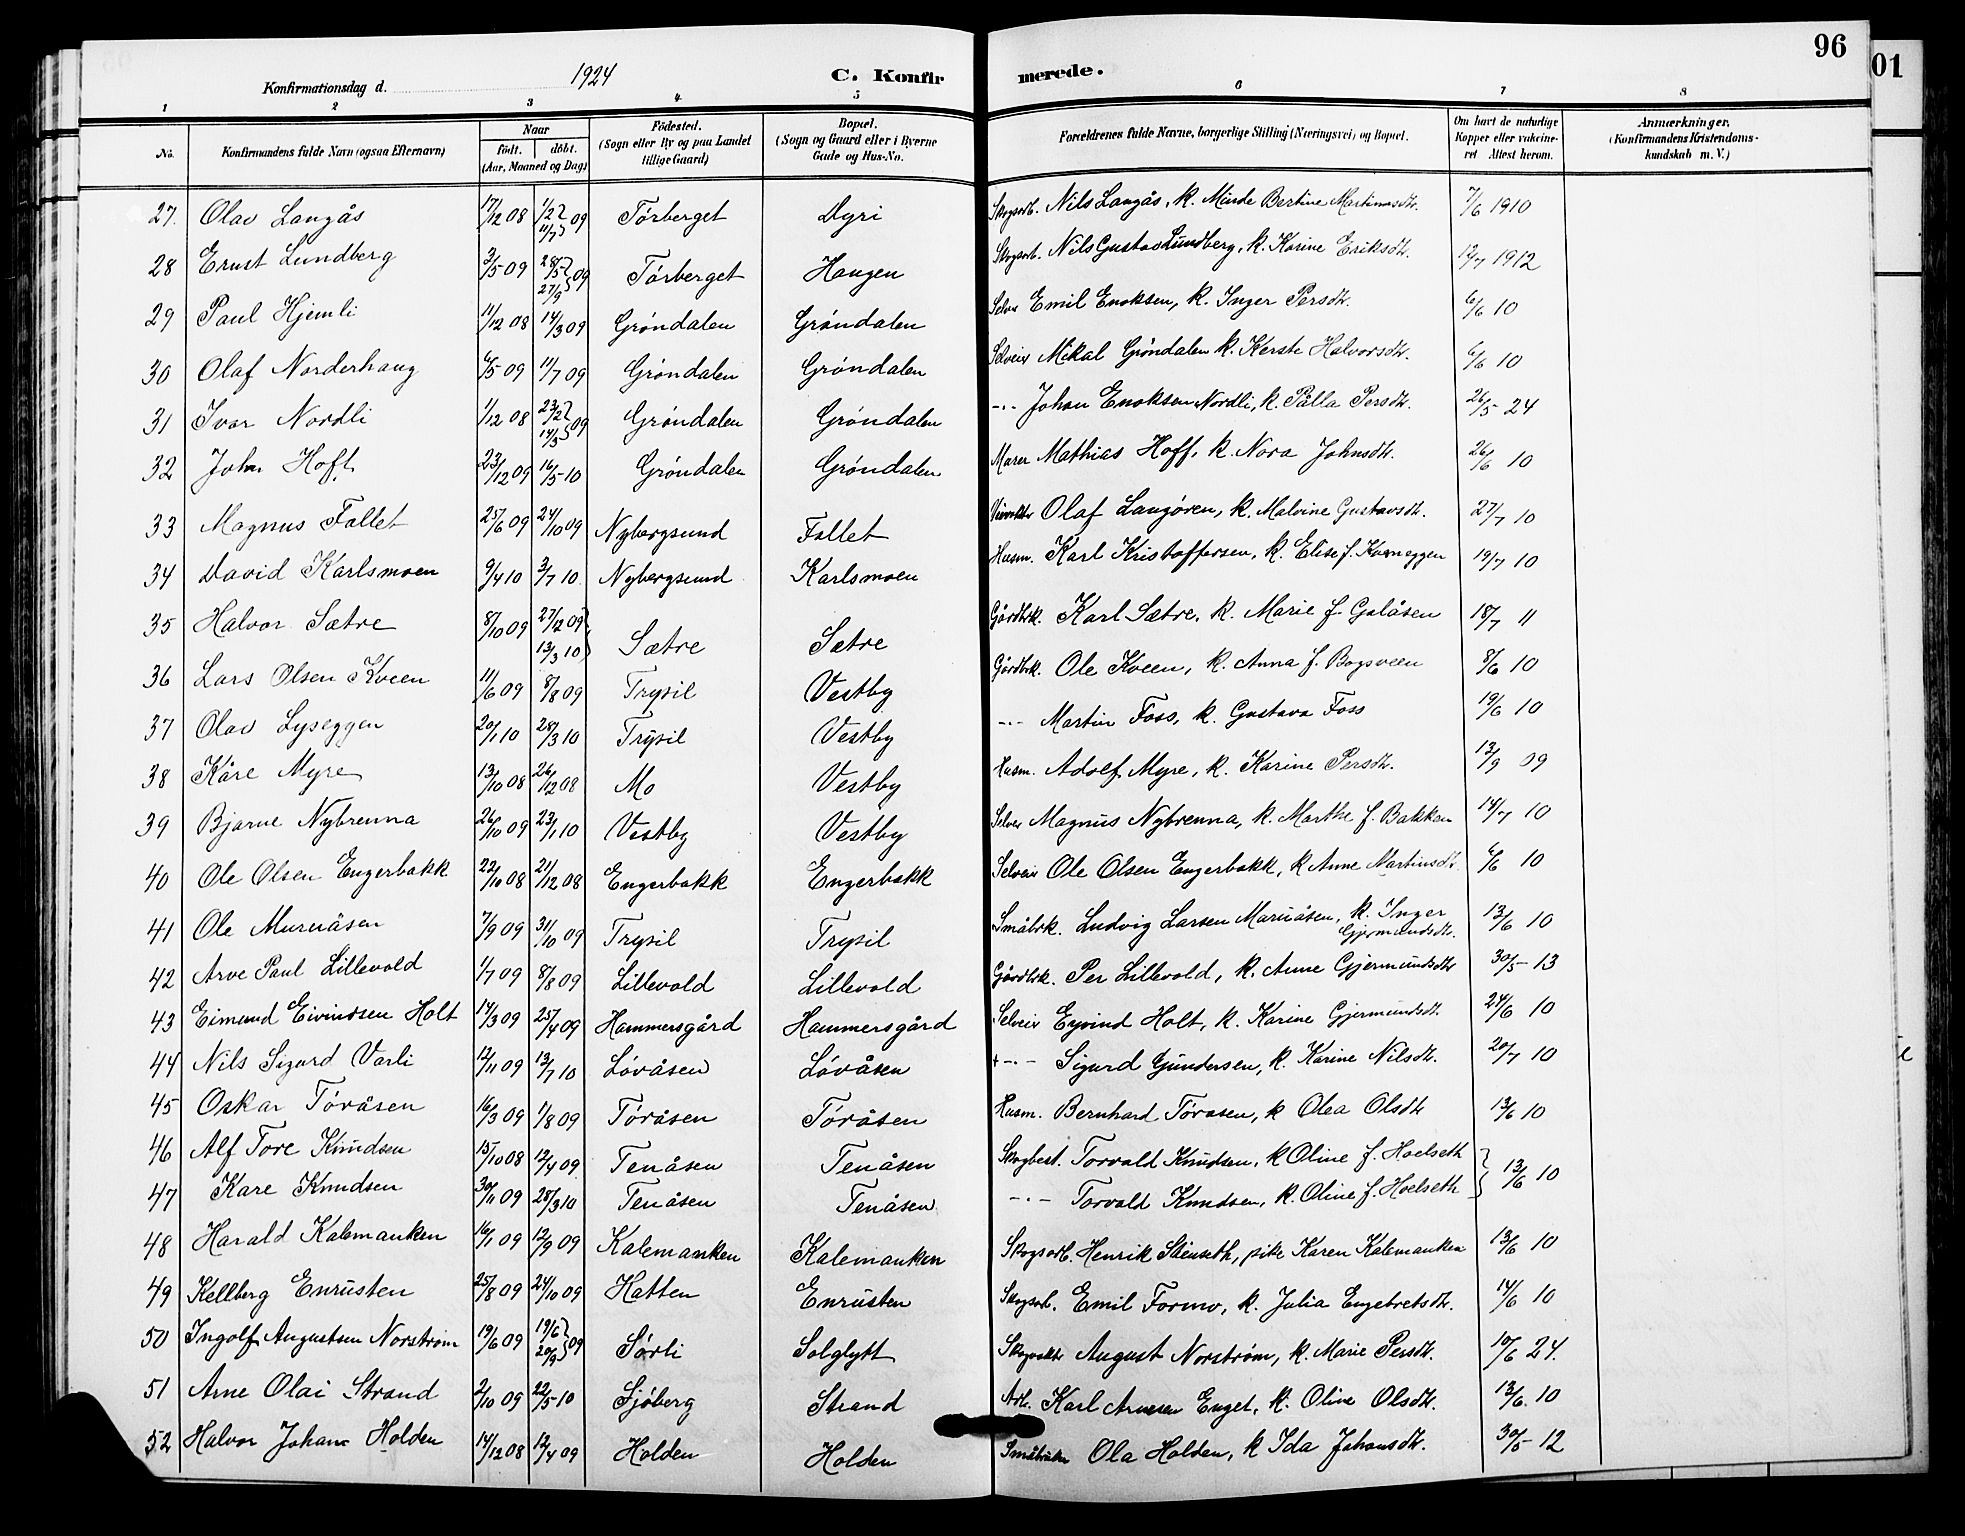 96
01
Konfirmationsdag d. 1924
C. Konfirmerede.
1 2 3 4 5 6 7 8
No. | Konfirmandens fulde Navn (ogsaa Efternavn) | Naar födt. döbt. (Aar, Maaned og Dag) | Födested. (Sogn eller By og paa Landet tillige Gaard) | Bopæl. (Sogn og Gaard eller i Byerne Gade og Hus-No. | Forældrenes fulde Navne, borgerlige Stilling (Næringsvei) og Bopæl. | Om havt de naturlige Kopper eller vakcineret Attest herom. | Anmærkninger. (Konfirmandens Kristendomskundskab m. V.)
27. Olav Langås 17/12 08 1/2 11/7 09 Törberget Dyri Skogsarb. Nils Langås, k. Minde Bertine Martinusdtr. 7/6 1910
28 Ernst Lundberg 3/5 09 28/5 27/9 09 Törberget Haugen Skogsarb. Nils Gustav Lundberg, k. Karine Eriksdtr. 12/7 1912
29 Paul Hjemli 11/12 08 14/3 09 Gröndalen Gröndalen Selvei Emil Enoksen, k. Inger Persdtr. 6/6 10
30 Olaf Norderhaug 6/5 09 11/7 09 Gröndalen Gröndalen Selveier Mikal Gröndalen k. Kerste Halvorsdtr. 6/6 10
31 Ivar Nordli 1/12 08 23/2 14/3 09 Gröndalen Gröndalen -"- Johan Enoksen Nordli, k. Pålla Persdtr. 26/5 24
32 John Hoff 23/12 09 16/5 10 Gröndalen Gröndalen Murer Mathias Hoff, k. Nora Johnsdtr. 26/6 10
33 Magnus Fallet 25/6 09 24/10 09 Nybergsund Fallet Olaf Langören, k. Malvine Gustavsdtr. 27/7 10
34 David Karlsmoen 9/4 10 3/7 10. Nybergsund Karlsmoen Husm. Karl Kristoffersen, k. Elise f. Kverneggen 19/7 10
35 Halvor Sætre 8/10 09 27/12 09 13/3 10 Sætre Sætre Gårdbrk. Karl Sætre, k. Marie f. Galåsen 18/7 11
36 Lars Olsen Kveen 11/6 09 8/8 09 Trysil Vestby Gårdbrk. Ole Kveen, k. Anna f. Bogsveen 8/6 10
37 Olav Lyseggen 20/1 10 28/3 10 Trysil Vestby -"- Martin Foss, k. Gustava Foss 19/6 10
38 Kåre Myre 13/10 08 26/12 08 Mo Vestby Husm. Adolf Myre, k. Karine Persdtr. 13/9 09
39 Bjarne Nybrenna 26/10 09 23/1 10 Vestby Vestby Selvei Magnus Nybrenna, k. Marthe f. Bakken 14/7 10
40 Ole Olsen Engerbakk 22/10 08 21/12 08 Engerbakk Engerbakk Selveier Ole Olsen Engerbakk, k Anne Martinsdtr. 6/6 10
41 Ole Muruåsen 7/9 09 31/10 09 Trysil Trysil Småbrk. Ludvig Larsen Muruåsen, k. Inger Gjermundsdtr. 13/6 10
42 Arve Paul Lillevold 1/7 09 8/8 09 Lillevold Lillevold Gårdbrk. Per Lillevold, k. Anne Gjermundsdtr 30/5 13
43 Eimund Eivindsen Holt 14/3 09 25/4 09 Hammersgård Hammersgård Selveier Eyvind Holt, k. Karine Gjermundsdtr. 24/6 10
44 Nils Sigurd Varli 12/11 09 13/7 10 Lövåsen Lövåsen + -"- Sigurd Gundersen, k. Karine Nilsdtr. 20/7 10
45 Oskar Töråsen 16/3 09 1/8 09 Töråsen Töråsen Husm. Bernhard Töråsen, k Olea Olsdtr 13/6 10
46 Alf Tore Knudsen 15/10 08 12/4 09 Tenåsen Tenåsen Skogbest. Torvald Knudsen, k Oline f. Hoelseth
47 Kare Knudsen 30/11 09 28/3 10 Tenåsen Tenåsen -"- Torvald Knudsen, k. Oline f. Hoelseth 13/6 10
48 Harald Kalemanken 16/1 09 12/9 09 Kalemanken Kalemanken Skogsarb. Henrik Stenseth, pike Karen Kalemanken 13/6 10
49 Kellberg Enrusten 25/8 09 24/10 09 Hatten Enrusten Skogsarb. Emil Formo, k. Julia Engebretsdtr. 14/6 10
50 Ingolf Augustsen Norström 19/6 09 19/6 20/9 09 Sörli Solglytt August Norström, k. Marie Persdtr. 10/6 24.
51 Arne Olai Strand 2/10 09 22/5 10 Sjöberg Strand Arb. Karl Arnesen Enget, k. Oline Olsdtr. 13/6 10
52 Halvor Johan Holden 14/12 08 12/4 09 Holden Holden Ola Holden, k Ida Johansdtr. 30/5 12